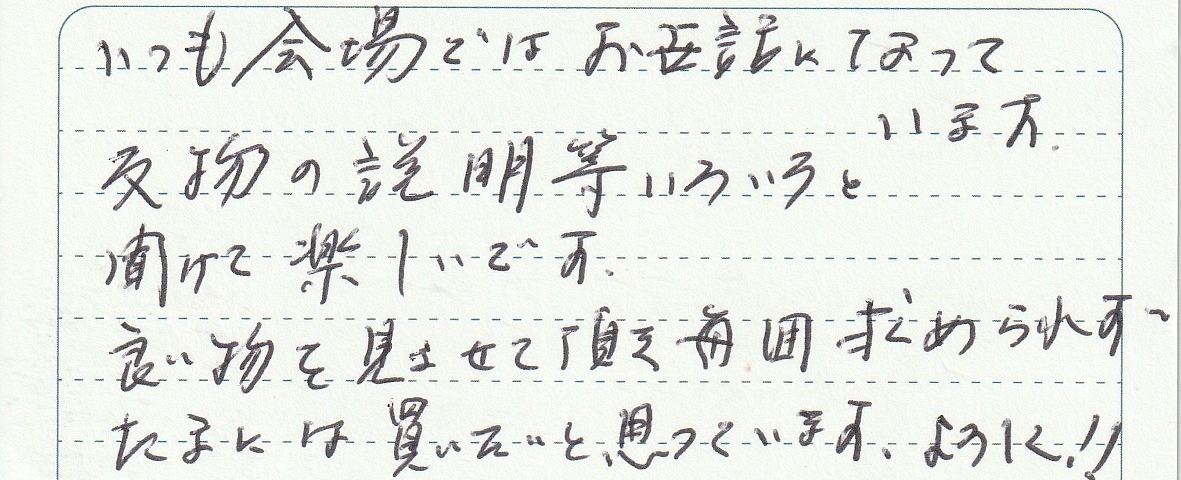 いつも会場ではお世話になって
います.
反物の説明等いろいろと
聞けて楽しいです.
良い物を見させて頂き毎回求められず〜
たまには買いたいと思っています、ように!!